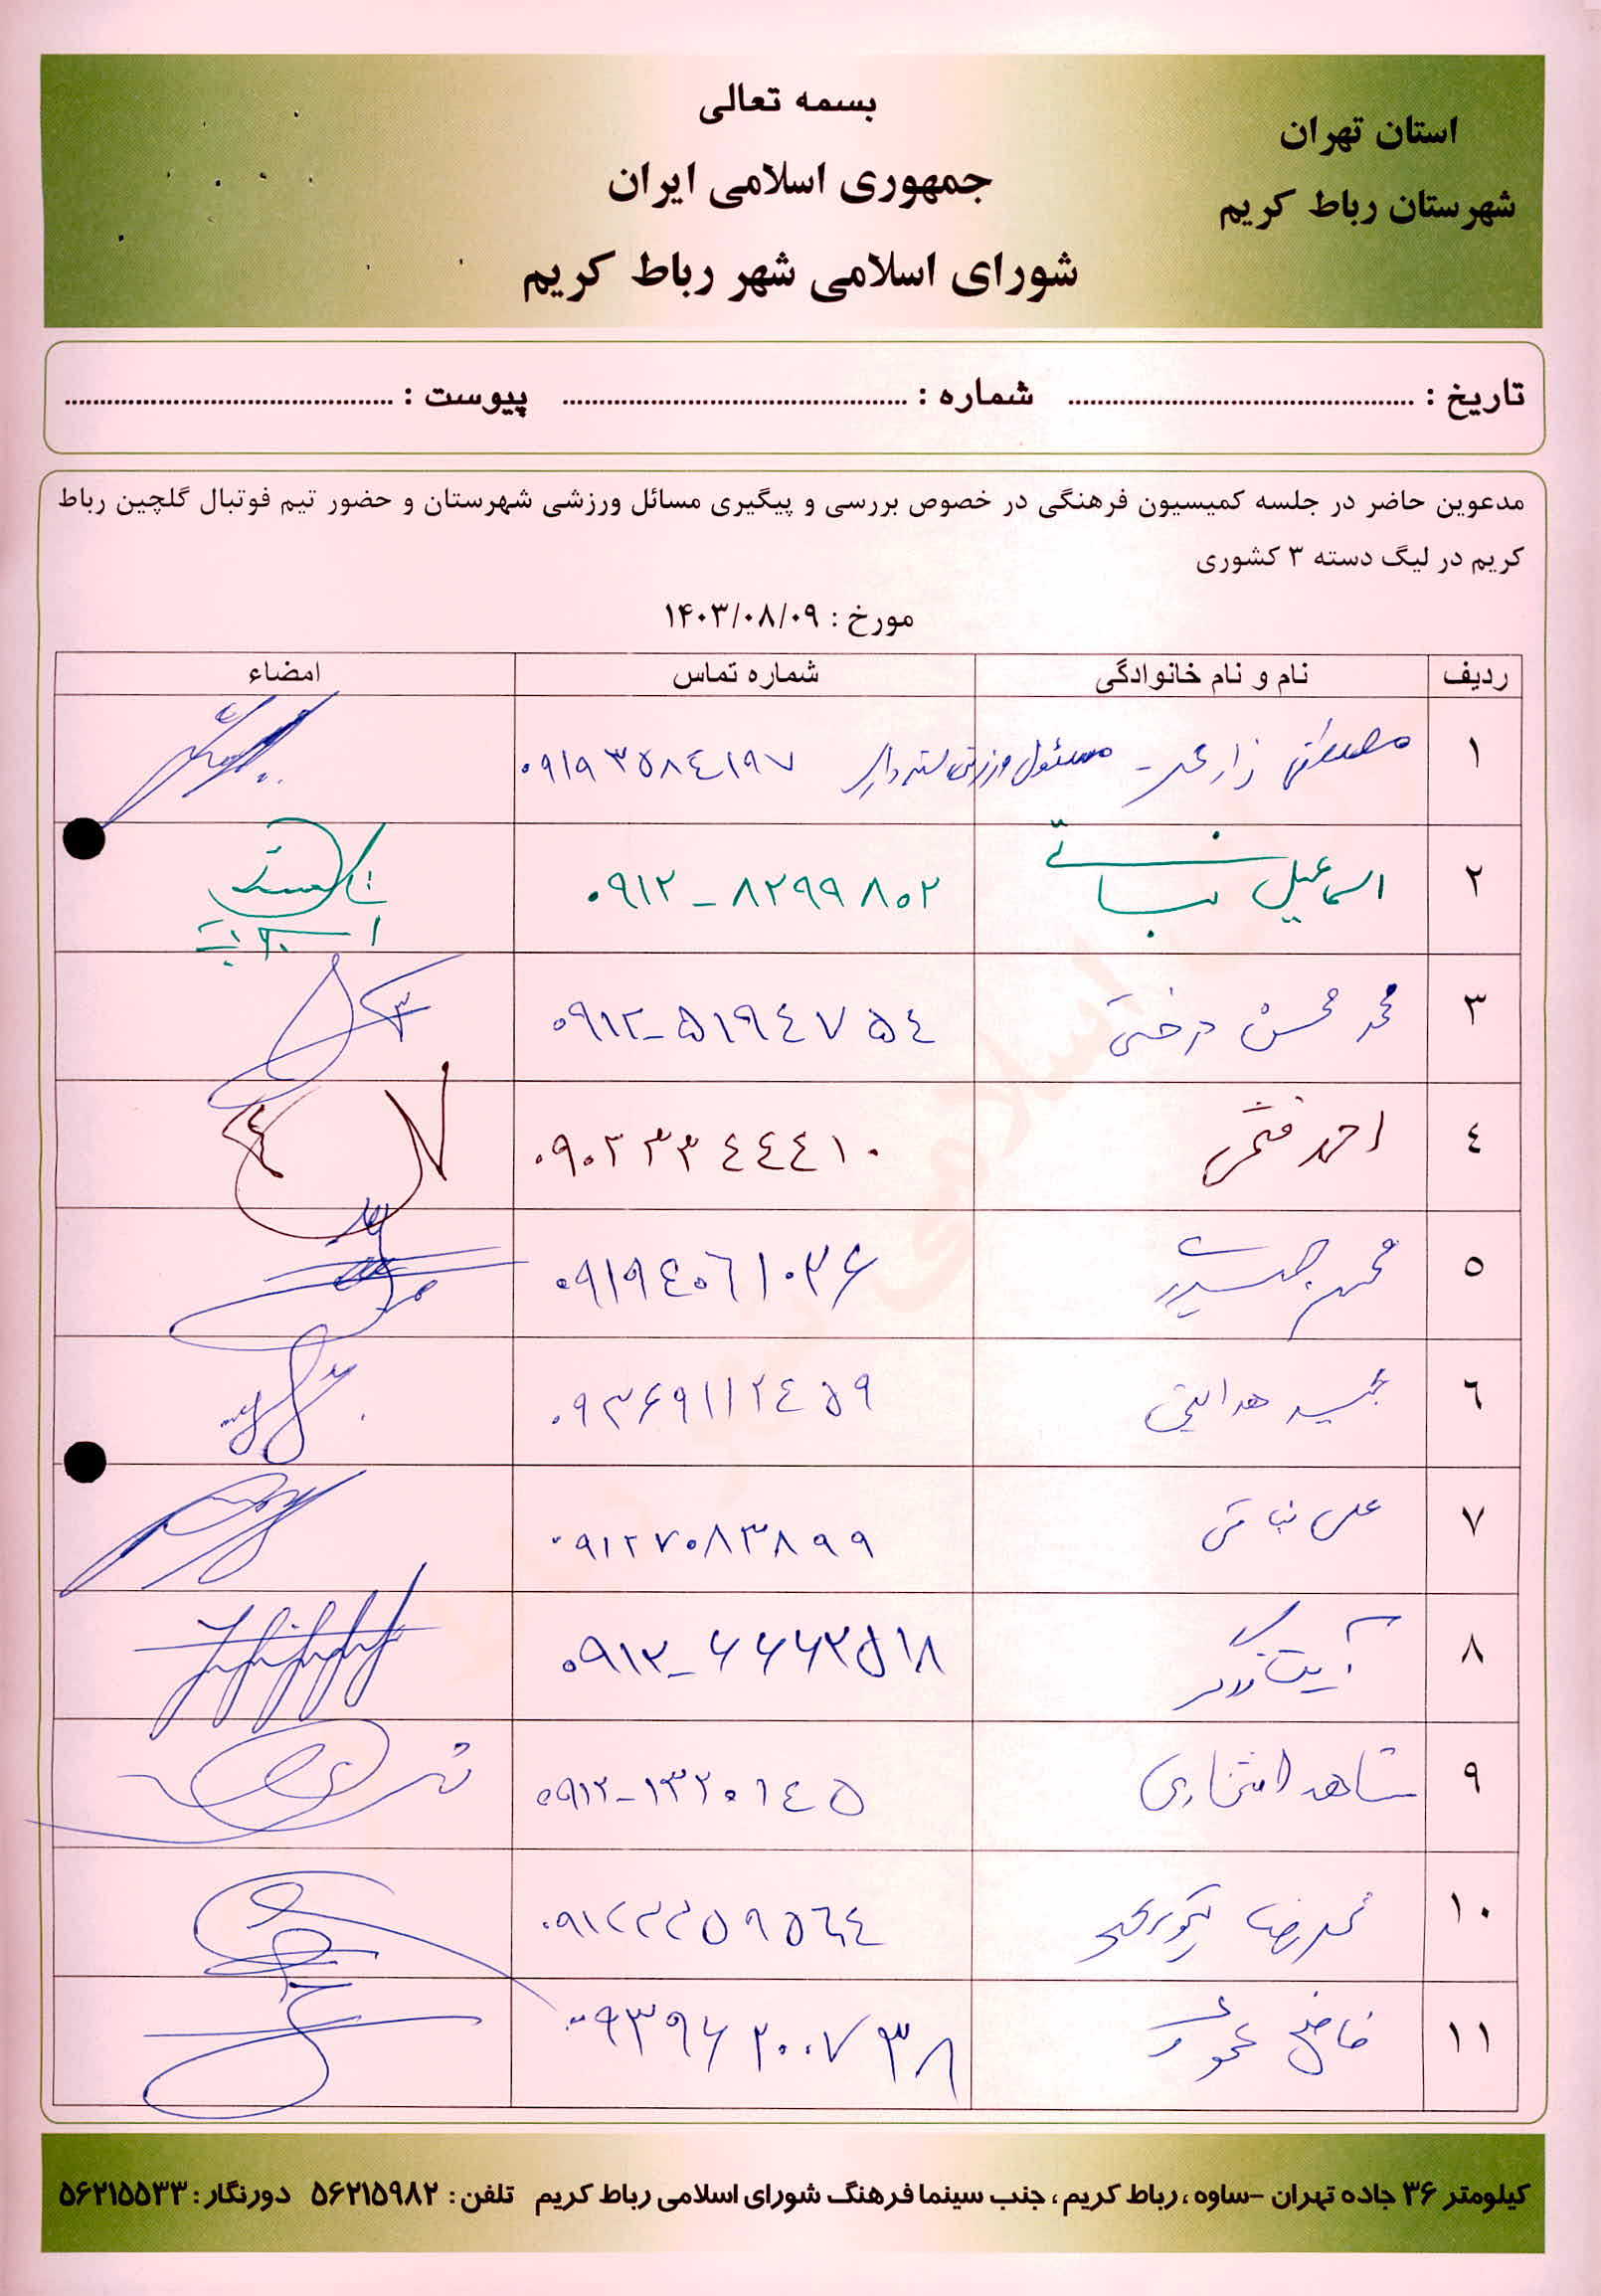 بسمه تعالی
جمهوری اسلامی ایران
شورای اسلامی شهر رباط کریم
استان تهران
شهرستان رباط کریم
تاریخ : ........................ شماره : ........................ پیوست : ........................
مدعوین حاضر در جلسه کمیسیون فرهنگی در خصوص بررسی و پیگیری مسائل ورزشی شهرستان و حضور تیم فوتبال گلچین رباط
کریم در لیگ دسته ۳ کشوری
مورخ : ۱۴۰۳/۰۸/۰۹
ردیف نام و نام خانوادگی شماره تماس امضاء
۱ مصطفی زارعی - مسئول ورزش ۰۹۱۹۳۵۸٤۱۹۷
۲ اسماعیل نباتی ۰۹۱۲-۸۲۹۹۸۰۲
۳ محمد محسن درختی ۰۹۱۲-۵۱۹٤۷۵٤
٤ احمد فتحی ۰۹۰۲۳۳٤٤٤۱۰
٥ ۰۹۱۹٤۰٦۱۰۳۶
٦ مجید هدایتی ۰۹۳۶۹۱۱۲٤۵۹
۷ علی نباتی ۰۹۱۲۷۰۸۳۸۹۹
۸ ۰۹۱۲-۶۶۶۲۵۱۸
۹ شاهد افتخاری ۰۹۱۲-۱۳۲۰۱٤۵
۱۰ ۰۹۱۲۲۲۵۹۵٦٤
۱۱ فاضل عموری ۰۹۳۹۶۲۰۰۷۳۸
کیلومتر ۳۶ جاده تهران -ساوه ، رباط کریم ، جنب سینما فرهنگ شورای اسلامی رباط کریم تلفن : ۵۶۲۱۵۹۸۲ دورنگار : ۵۶۲۱۵۵۳۳